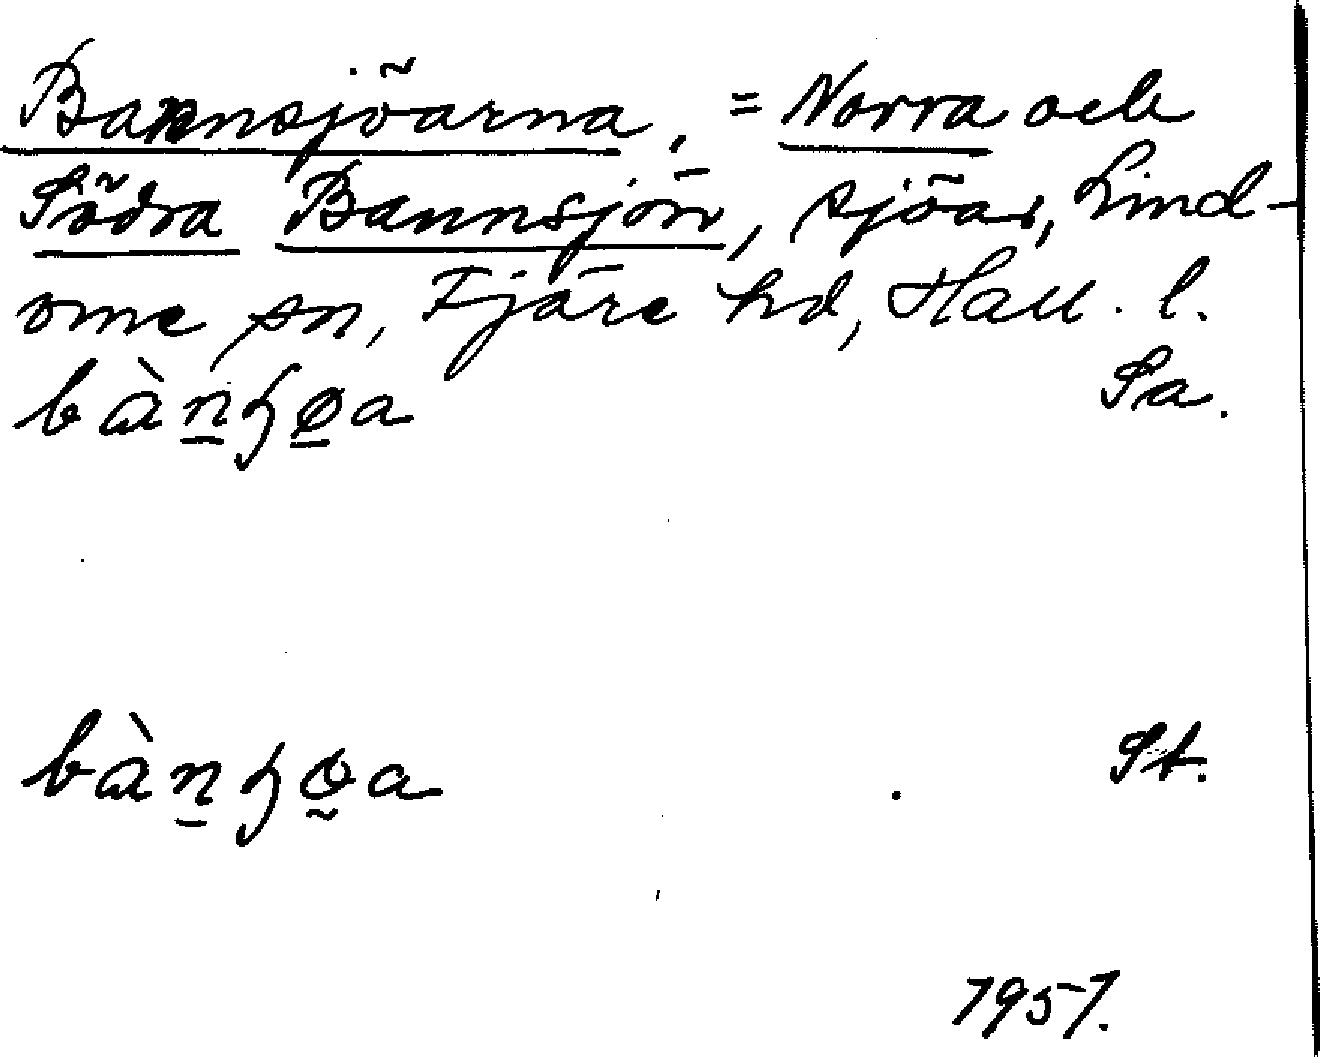 Bannsjöarna, = Norra och
Södra Bannsjön, sjöar, Lind-
ome sn, Fjäre hd, Hall. l.
bàn̲ɧø̲a Sa.
bàn̲ɧø̰a St.
1957.